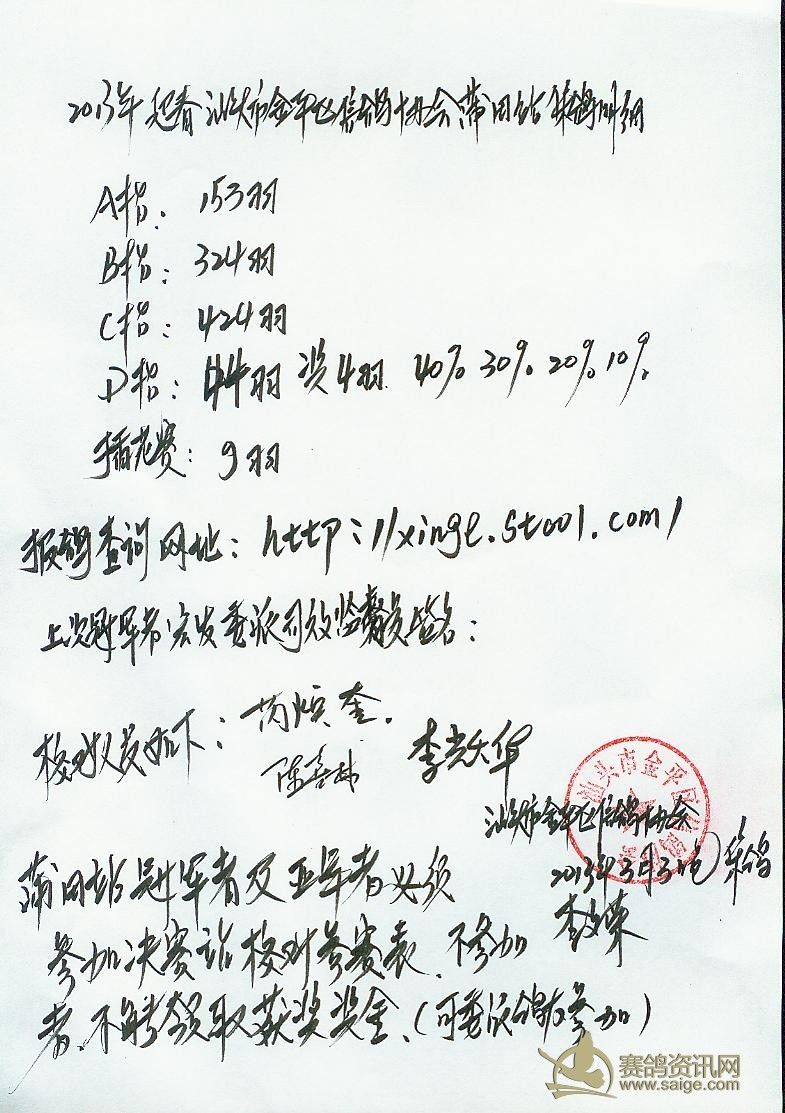 2013年 迎春 汕头市金平区信鸽协会莆田站集鸽明细
A指：153羽
B指：324羽
C指：424羽
D指：44羽 奖4羽 40% 30% 20% 10%
插花赛：9羽
报鸽查询网址：http://xinge.5tool.com/
上次冠军
签名：
核对人员如下：
李
汕头市金平区信鸽协会
2013年3月3 集鸽
莆田站冠军者及亚军者必须
参加决赛站核对参赛表，不参加
者，不能领取获奖奖金，（可委派鸽友参加）
汕头市金平区
赛鸽资讯网
www.saige.com